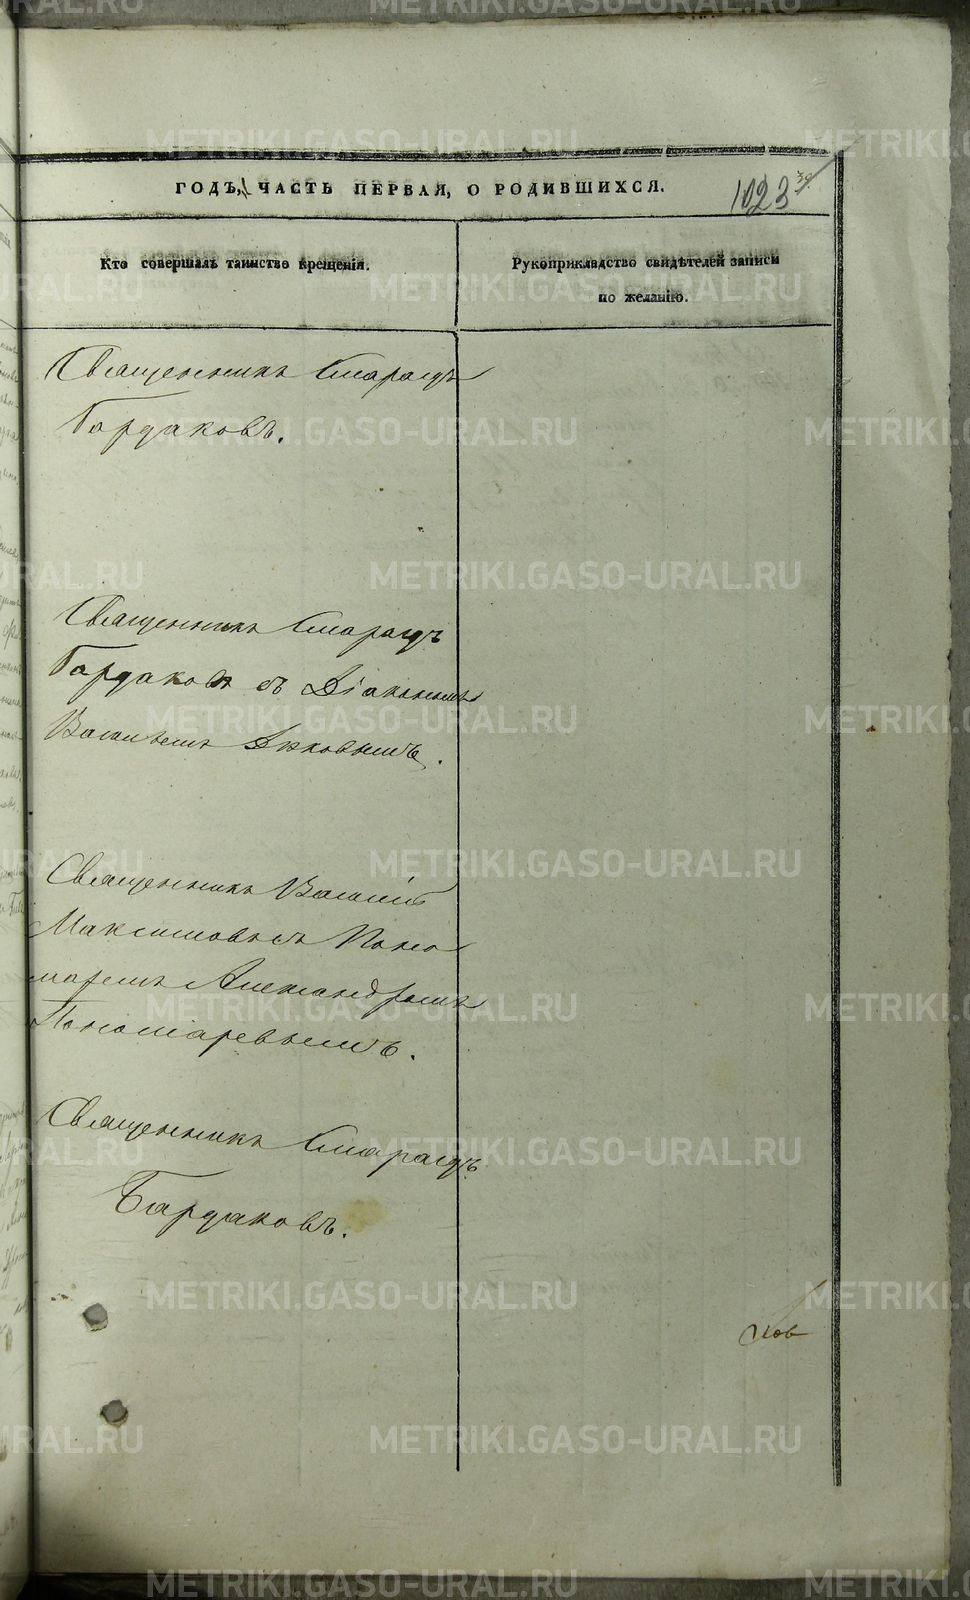 METRIKI.GASO-URAL.RU
ГОДЪ, ЧАСТЬ ПЕРВАЯ, О РОДИВШИХСЯ.
1023
Кто совершалъ таинство крещенія.
Рукоприкладство свидѣтелей записи
по желанію.
Священникъ Смарагдъ
Бардаковъ.
Священникъ Смарагдъ
Бардаковъ съ Діакономъ
Василіемъ
Священникъ Василій
Максимовъ съ Поно
маремъ Александромъ
Пономаревымъ.
Священникъ Смарагдъ
Бардаковъ.